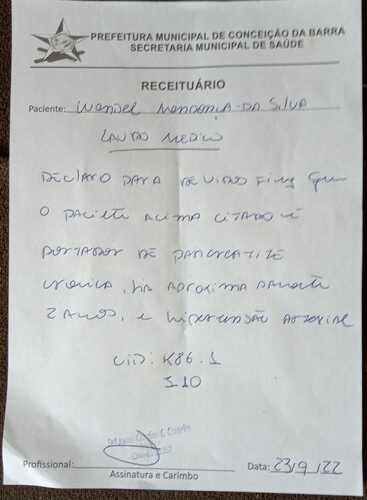 PREFEITURA MUNICIPAL DE CONCEIÇÃO DA BARRA
SECRETARIA MUNICIPAL DE SAÚDE
RECEITUÁRIO
Paciente: Wandel Mendonça da Silva
LAUDO MEDICO
DECLARO PARA DEVIDOS FINS QUE
O PACIENTE ACIMA CITADO É
PORTADOR DE PANCREATITE
CRONICA, HÁ APROXIMADAMENTE
2 ANOS, E HIPERTENSÃO ARTERIAL
CID: K86.1
I10
Profissional:
Assinatura e Carimbo
Data: 23/9/22